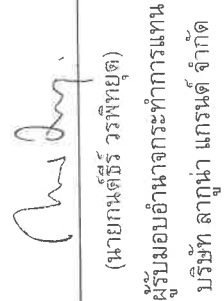 (นายกนต์ธีร์ วรพิทยุต)
ผู้รับมอบอำนาจกระทำการแทน
บริษัท ลากูน่า แกรนด์ จำกัด